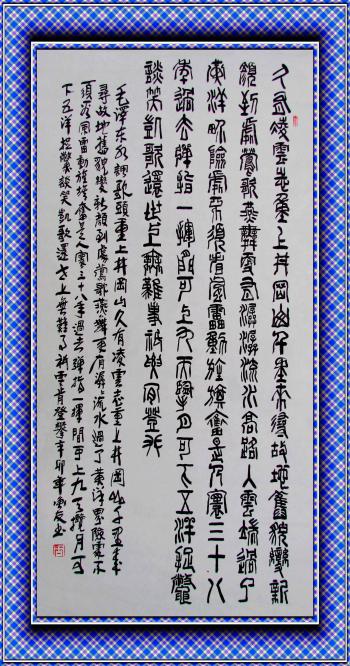 久有凌雲志重上井岡山千里來尋故地舊貌變新
顏到處鶯歌燕舞更有潺潺流水高路入雲端過了
黃洋界險處不須看風雷動旌旗奮是人寰三十八
年過去彈指一揮間可上九天攬月可下五洋捉鱉
談笑凱歌還世上無難事祇要肯登攀
毛澤東水調歌頭重上井岡山久有凌雲志重上井岡山千里來
尋故地舊貌變新顏到處鶯歌燕舞更有潺流水過了黃洋界險處不
須看風雷動旌旗奮是人寰三十八年過去彈指一揮間可上九天攬月可
下五洋捉鱉談笑凱歌還世上無難事祇要肯登攀辛卯年